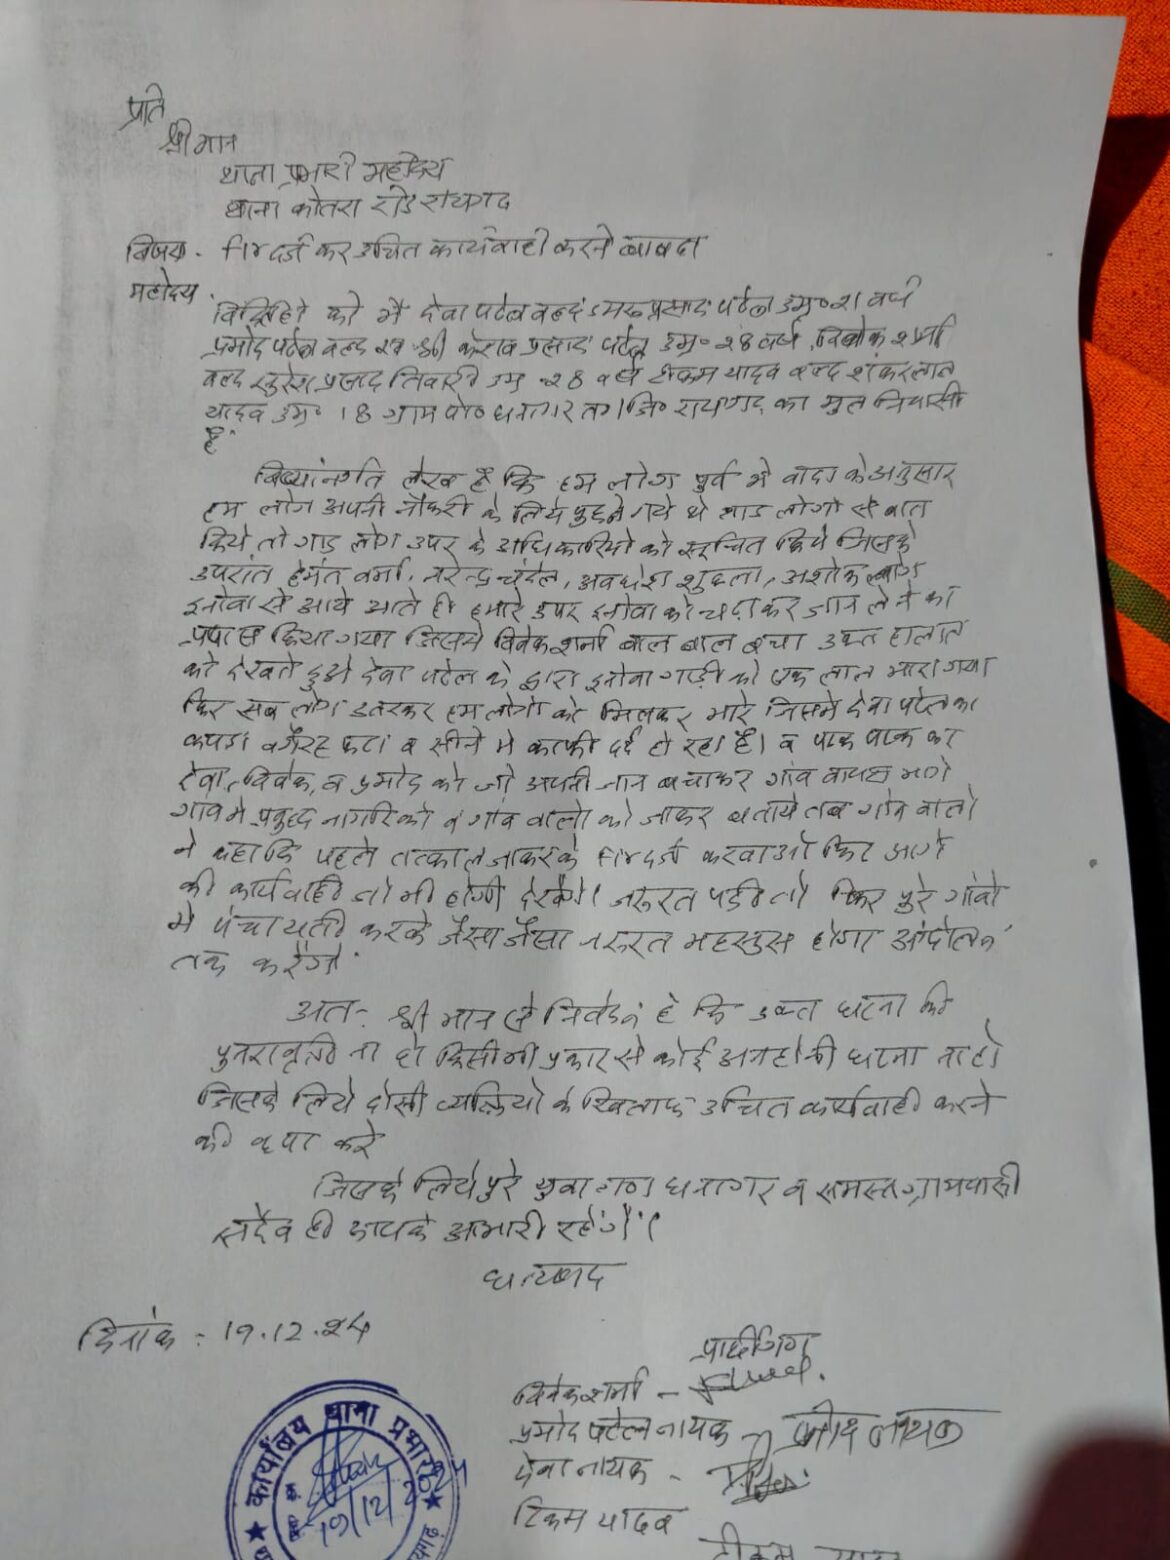 प्रति
श्रीमान
थाना प्रभारी महोदय
थाना कोतरा रोड रायगढ
विषय - FIR दर्ज कर उचित कार्यवाही करने बाबद।
महोदय.
की मै देवा पटेल वल्द डमरू प्रसाद पटेल उम्र० २१ वर्ष
प्रमोद पटेल वल्द स्व श्री केशव प्रसाद पटेल उम्र० २8 वर्ष, शर्मा
वल्द सुरेश प्रसाद तिवारी उम्र २8 वर्ष टीकम यादव वल्द शंकरलाल
यादव उम्र० 18 ग्राम पो० धनागर जि० रायगढ का मुल निवासी
है
लेख है कि हम लोग पुर्व मे वादा के अनुसार
हम लोग अपनी नौकरी के लिये पुछने गये थे गाड लोगो से बात
किये तो गाड लोग उपर के अधिकारियो को सूचित किये जिसके
उपरांत हेमंत वर्मा, नरेन्द्र चंदेल, अवधेश शुक्ला, अशोक
इनोवा से आये आते ही हमारे उपर इनोवा को चढ़ाकर जान लेने का
प्रयास किया गया जिसमे विवेक शर्मा बाल बाल बचा उक्त हालात
को देखते हुये देवा पटेल के द्वारा इनोवा गाड़ी को एक लात मारा गया
फिर सब लोग उतरकर हम लोगो को मिलकर मारे जिसमे देवा पटेल का
कपडा वगैरह फटा व सीने मे काफी दर्द हो रहा है। व पटक पटक कर
देवा, विवेक, व प्रमोद को जो अपनी जान बचाकर गांव वापस भागे
गांव मे प्रबुध्द नागरिको व गांव वालो को जाकर बताये तब गांव वालो
ने कहा कि पहले तत्काल जाकर के FIR दर्ज करवाओ फिर आगे
की कार्यवाही जो भी होगी देखेंगे। जरूरत पडी तो फिर पुरे गांवो
मे पंचायती करके जैसा जैसा जरूरत महसुस होगा आंदोलन
तक करेंगे.
अत:- श्री मान से निवेदन है कि उक्त घटना की
पुनरावृत्ति ना हो किसी भी प्रकार से कोई अनहोनी घटना ना हो
जिसके लिये दोसी व्यक्तियो के खिलाफ उचित कार्यवाही करने
की कृपा करे
जिसके लिये पुरे युवा गण धनागर व समस्त ग्रामवासी
सदैव ही आपके आभारी रहेंगे।
धन्यवाद
दिनांक - 19.12.२4
प्रार्थीगण
विवेक शर्मा -
प्रमोद पटेल नायक - प्रमोद नायक
देवा नायक -
टिकम यादव
टीकम यादव
कार्यालय थाना प्रभारी
19/12/२०२4